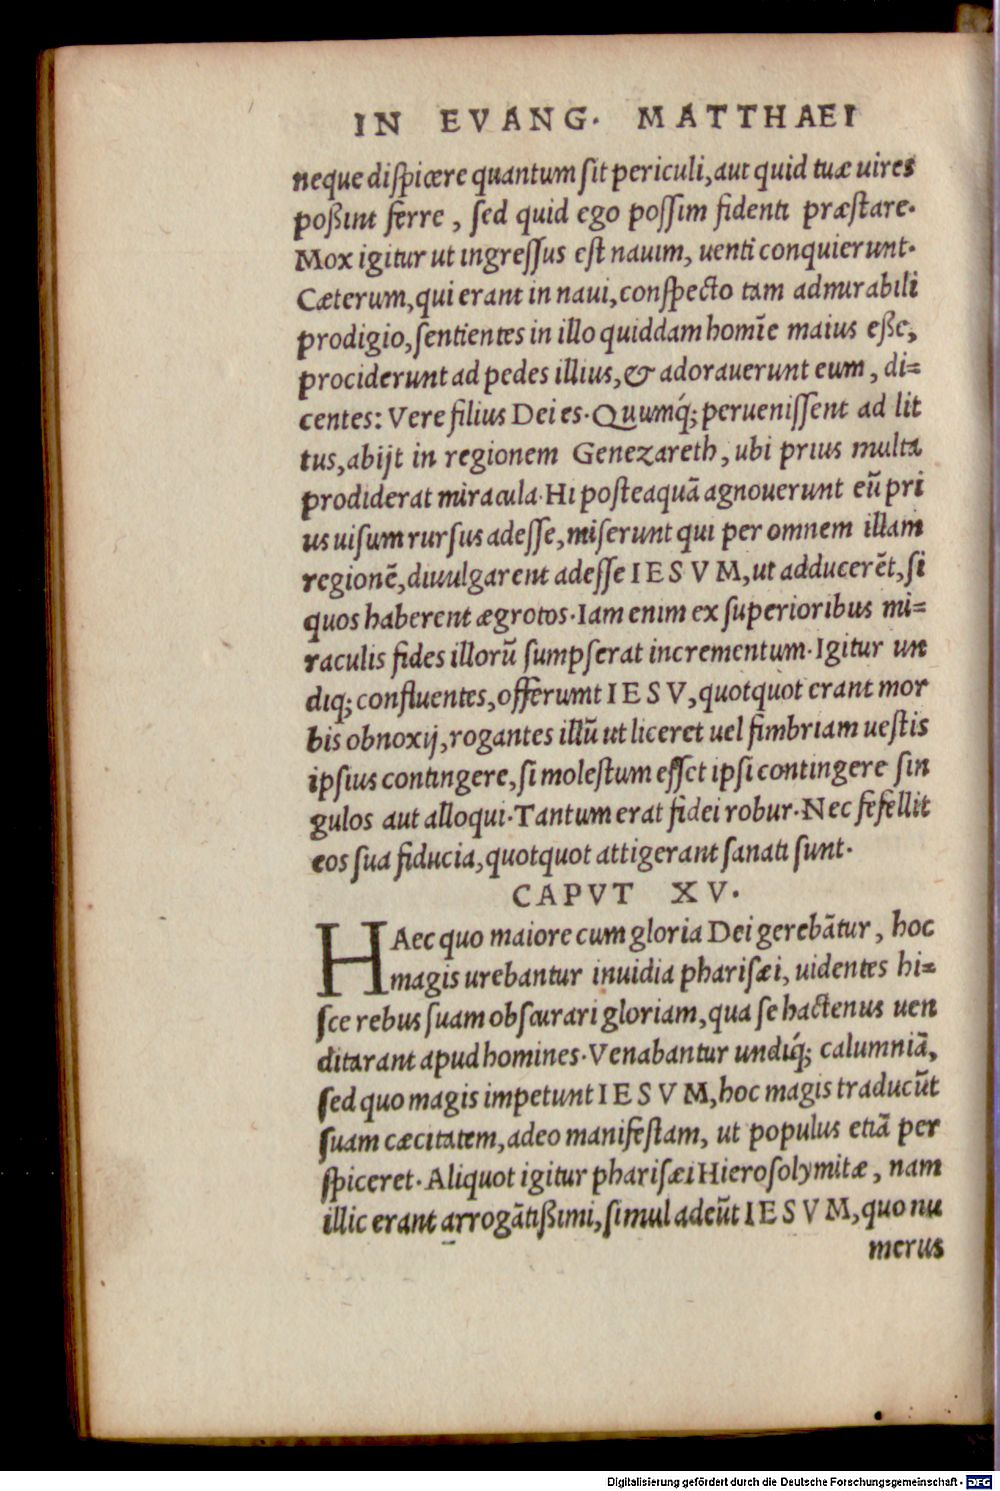 IN EVANG. MATTHAEI
neque dispicere quantum sit periculi, aut quid tuæ uires
poßint ferre, sed quid ego possim fidenti præstare.
Mox igitur ut ingressus est nauim, uenti conquierunt.
Cæterum, qui erant in naui, conspecto tam admirabili
prodigio, sentientes in illo quiddam homīe maius eße,
prociderunt ad pedes illius, & adorauerunt eum, di=
centes: Vere filius Dei es. Quumq́; peruenissent ad lit
tus, abijt in regionem Genezareth, ubi prius multa
prodiderat miracula. Hi posteaquā agnouerunt eū pri
us uisum rursus adesse, miserunt qui per omnem illam
regionē, diuulgarent adesse IESVM, ut adducerēt, si
quos haberent ægrotos. Iam enim ex superioribus mi=
raculis fides illorū sumpserat incrementum. Igitur un
diq; confluentes, offerunt IESV, quotquot erant mor
bis obnoxij, rogantes illū ut liceret uel fimbriam uestis
ipsius contingere, si molestum esset ipsi contingere sin
gulos aut alloqui. Tantum erat fidei robur. Nec fefellit
eos sua fiducia, quotquot attigerant sanati sunt.
CAPVT XV.
HAec quo maiore cum gloria Dei gerebātur, hoc
magis urebantur inuidia pharisæi, uidentes hi=
sce rebus suam obscurari gloriam, qua se hactenus uen
ditarant apud homines. Venabantur undiq́; calumniā,
sed quo magis impetunt IESVM, hoc magis traducūt
suam cæcitatem, adeo manifestam, ut populus etiā per
spiceret. Aliquot igitur pharisæi Hierosolymitæ, nam
illic erant arrogātißimi, simul adeūt IESVM, quo nu
merus
Digitalisierung gefördert durch die Deutsche Forschungsgemeinschaft - DFG